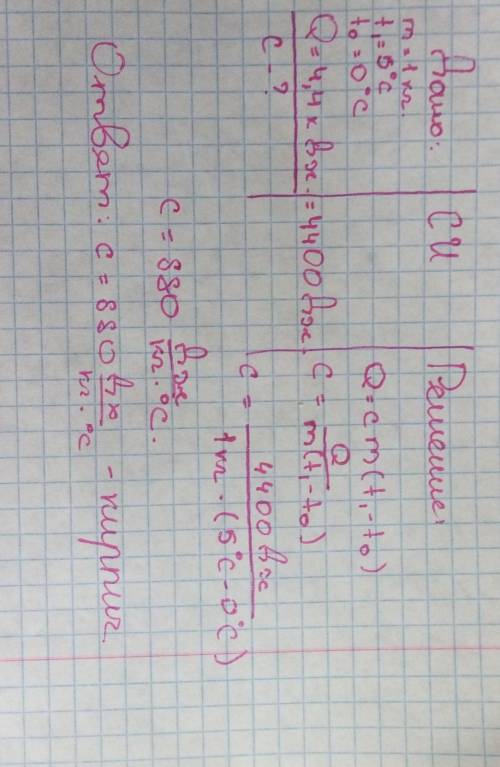 Дано:
m = 1 кг.
t₁ = 5°C
t₀ = 0°C
Q = 4,4 кДж.
c - ?
СИ
= 4400 Дж.
Решение:
Q = c m (t₁ - t₀)
c = Q / m(t₁ - t₀)
c = 4400 Дж / 1 кг · (5°C - 0°C)
c = 880 Дж / кг · °C.
Ответ: c = 880 Дж / кг · °C - кирпич.